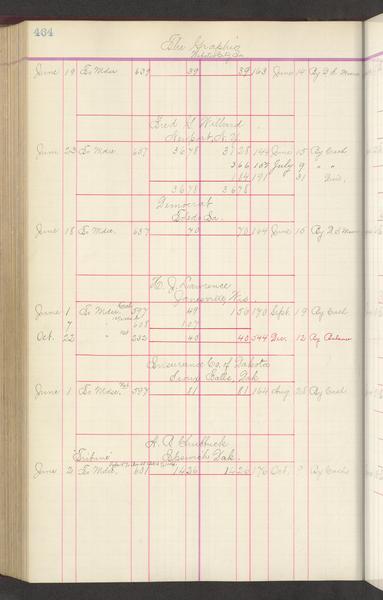 464
The Graphic
June 19 To Mdse 639 39 39 163 June 14 By
Fred G. Willard
Newport, N.Y.
June 23 To Mdse. 657 3678 3728 144 June 15 By Cash
366 187 July 9 " "
184 191 31 " Disc.
3678 3678
Democrat
June 18 To Mdse. 637 70 70 164 June 15 By
H. J. Lawrence
Janesville, Wis.
June 1 To Mdse. 597 49 156 170 Sept. 19 By Cash
7 " 608 107
Oct. 22 " 232 40 40 544 Dec. 12 By Balance
Insurance Co. of Dakota
Sioux Falls, Dak
June 1 To Mdse. 597 81 81 164 Aug 28 By Cash
H. A. Chubbuck
"Tribune" Ipswich, Dak.
June 2 To Mdse. 601 1426 1426 176 Oct. 9 By Cash